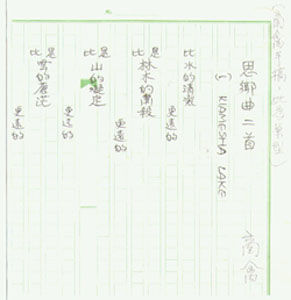 (商禽手稿
思鄉曲二首
商禽
(一)
LAKE
比水的清澈
更遠的
是
比
林木的肅殺
更遠的
是
比
山的凝定
更遠的
是
比
雲的蒼茫
更遠的